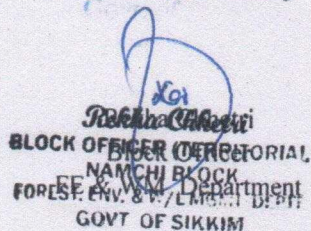 Rekha Chhetri
BLOCK OFFICER (TERRITORIAL
Block Officer
NAMCHI BLOCK
FE & W/M Department
FOREST. ENV. & W/L MGMT DEPTT
GOVT OF SIKKIM